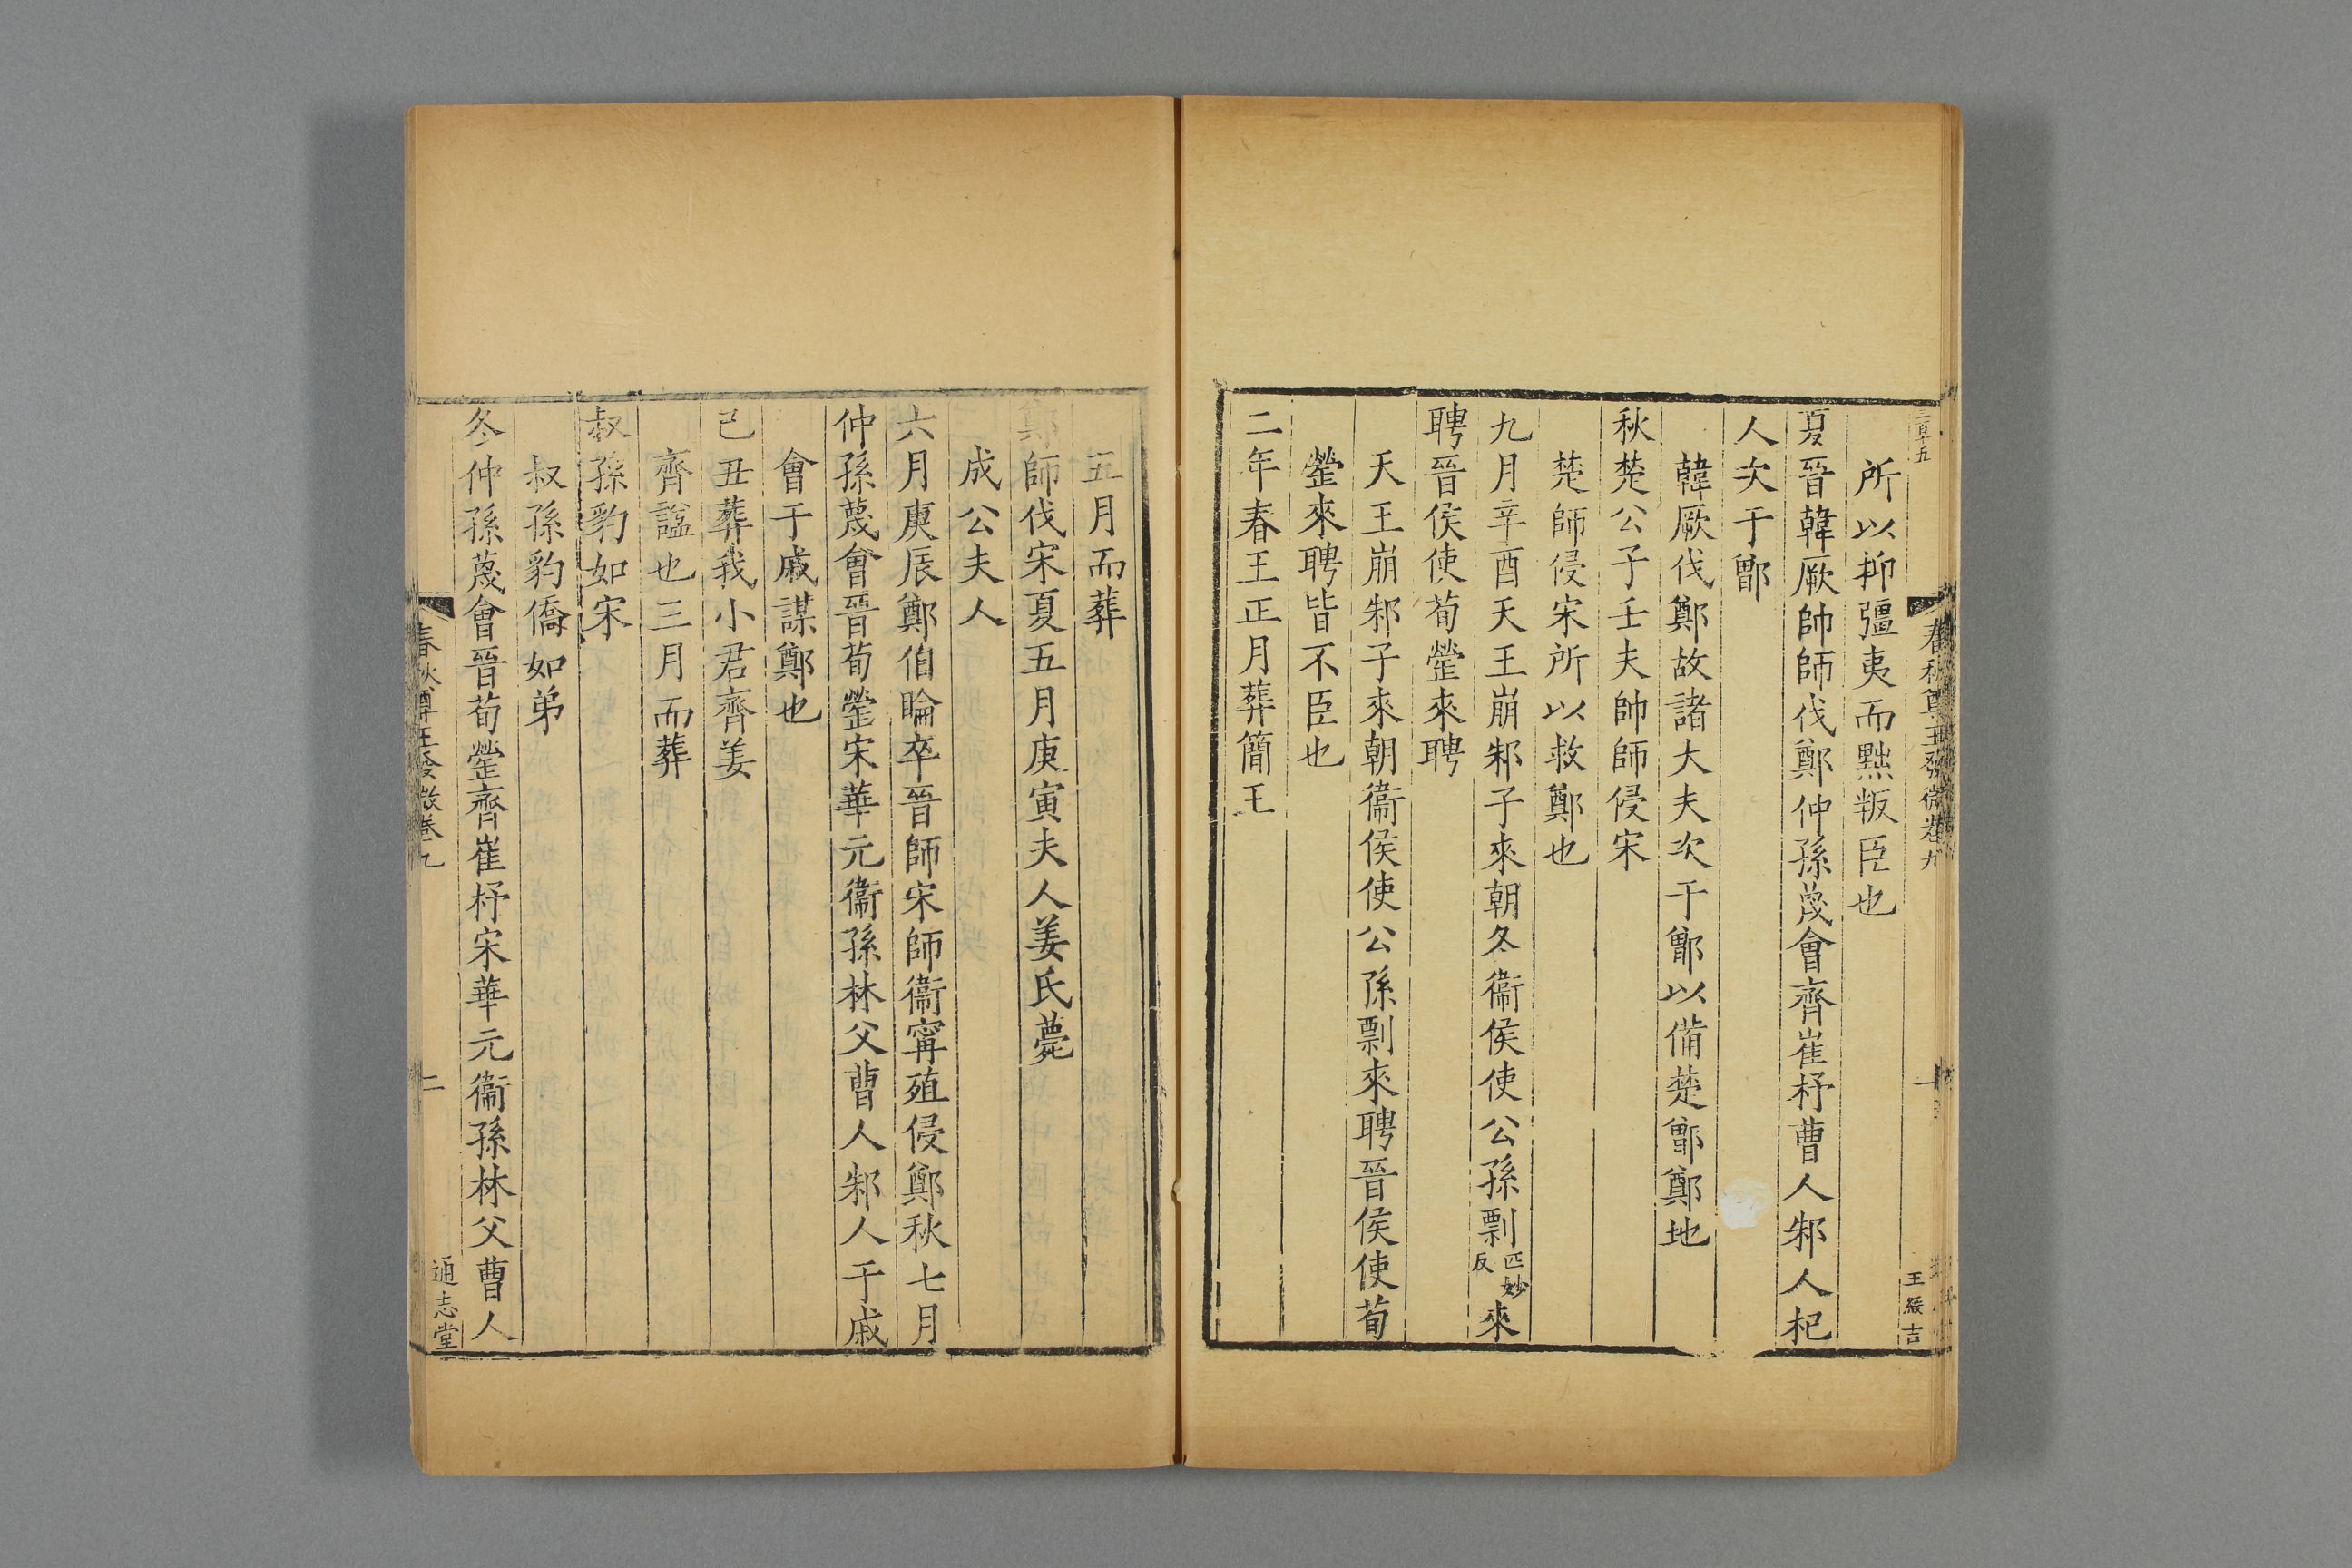 三百十五
春秋尊王發微卷九
一
王綬吉
所以抑彊夷而黜叛臣也
夏晉韓厥帥師伐鄭仲孫蔑會齊崔杼曹人邾人杞
人次于鄫
韓厥伐鄭故諸大夫次于鄫以備楚鄫鄭地
秋楚公子壬夫帥師侵宋
楚師侵宋所以救鄭也
九月辛酉天王崩邾子來朝冬衞侯使公孫剽匹妙反來
聘晉侯使荀罃來聘
天王崩邾子來朝衞侯使公孫剽來聘晉侯使荀
罃來聘皆不臣也
二年春王正月葬簡王
五月而葬
鄭師伐宋夏五月庚寅夫人姜氏薨
成公夫人
六月庚辰鄭伯睔卒晉師宋師衞甯殖侵鄭秋七月
仲孫蔑會晉荀罃宋華元衞孫林父曹人邾人于戚
會于戚謀鄭也
己丑葬我小君齊姜
齊諡也三月而葬
叔孫豹如宋
叔孫豹僑如弟
冬仲孫蔑會晉荀罃齊崔杼宋華元衞孫林父曹人
春秋尊王發微卷九
二
通志堂